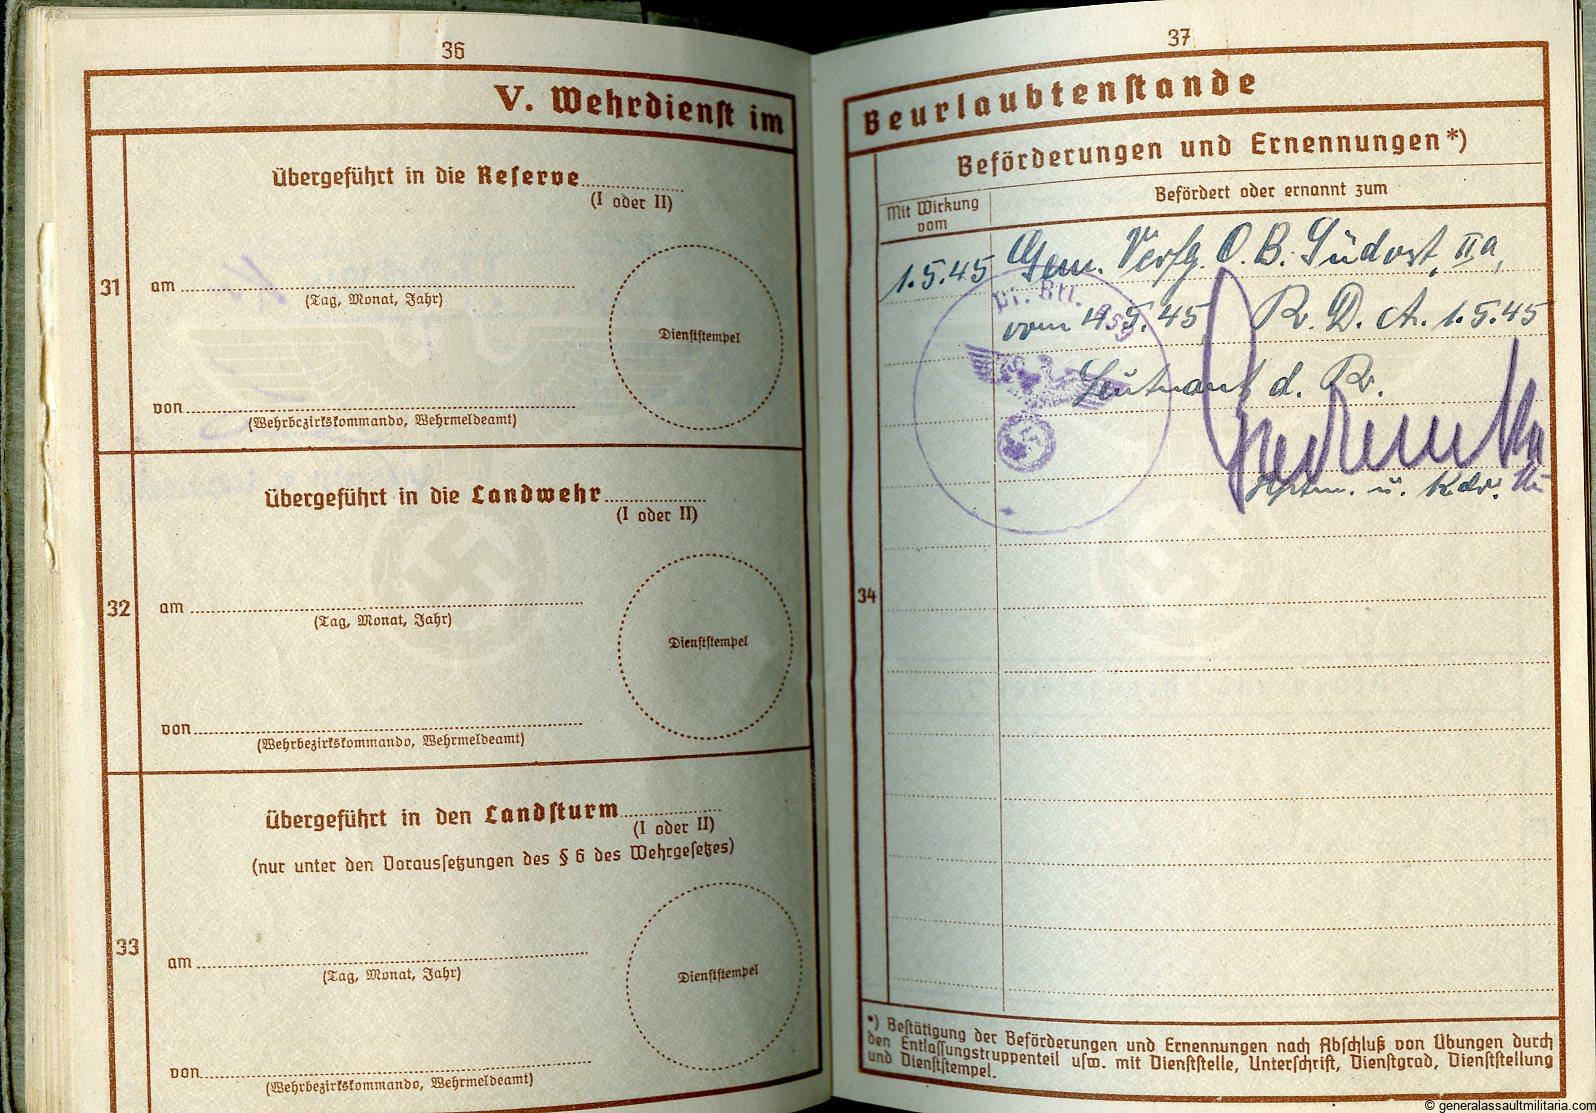 36
V. Wehrdienst im
übergeführt in die Reserve
(I oder II)
31
am
(Tag, Monat, Jahr)
Dienststempel
von
(Wehrbezirkskommando, Wehrmeldeamt)
übergeführt in die Landwehr
(I oder II)
32
am
(Tag, Monat, Jahr)
Dienststempel
von
(Wehrbezirkskommando, Wehrmeldeamt)
übergeführt in den Landsturm
(I oder II)
(nur unter den Voraussetzungen des § 6 des Wehrgesetzes)
33
am
(Tag, Monat, Jahr)
Dienststempel
von
(Wehrbezirkskommando, Wehrmeldeamt)
37
Beurlaubtenstande
Beförderungen und Ernennungen*)
Mit Wirkung
vom
Befördert oder ernannt zum
1.5.45 Gem. Verfg. O.B. Südost, IIa,
vom 4.5.45 R.D.A. 1.5.45
Leutnant d. R.
Hptm. u. Kdr.
Pi. Btl. 959
34
*) Bestätigung der Beförderungen und Ernennungen nach Abschluß von Übungen durch
den Entlassungstruppenteil usw. mit Dienststelle, Unterschrift, Dienstgrad, Dienststellung
und Dienststempel.
© generalassaultmilitaria.com